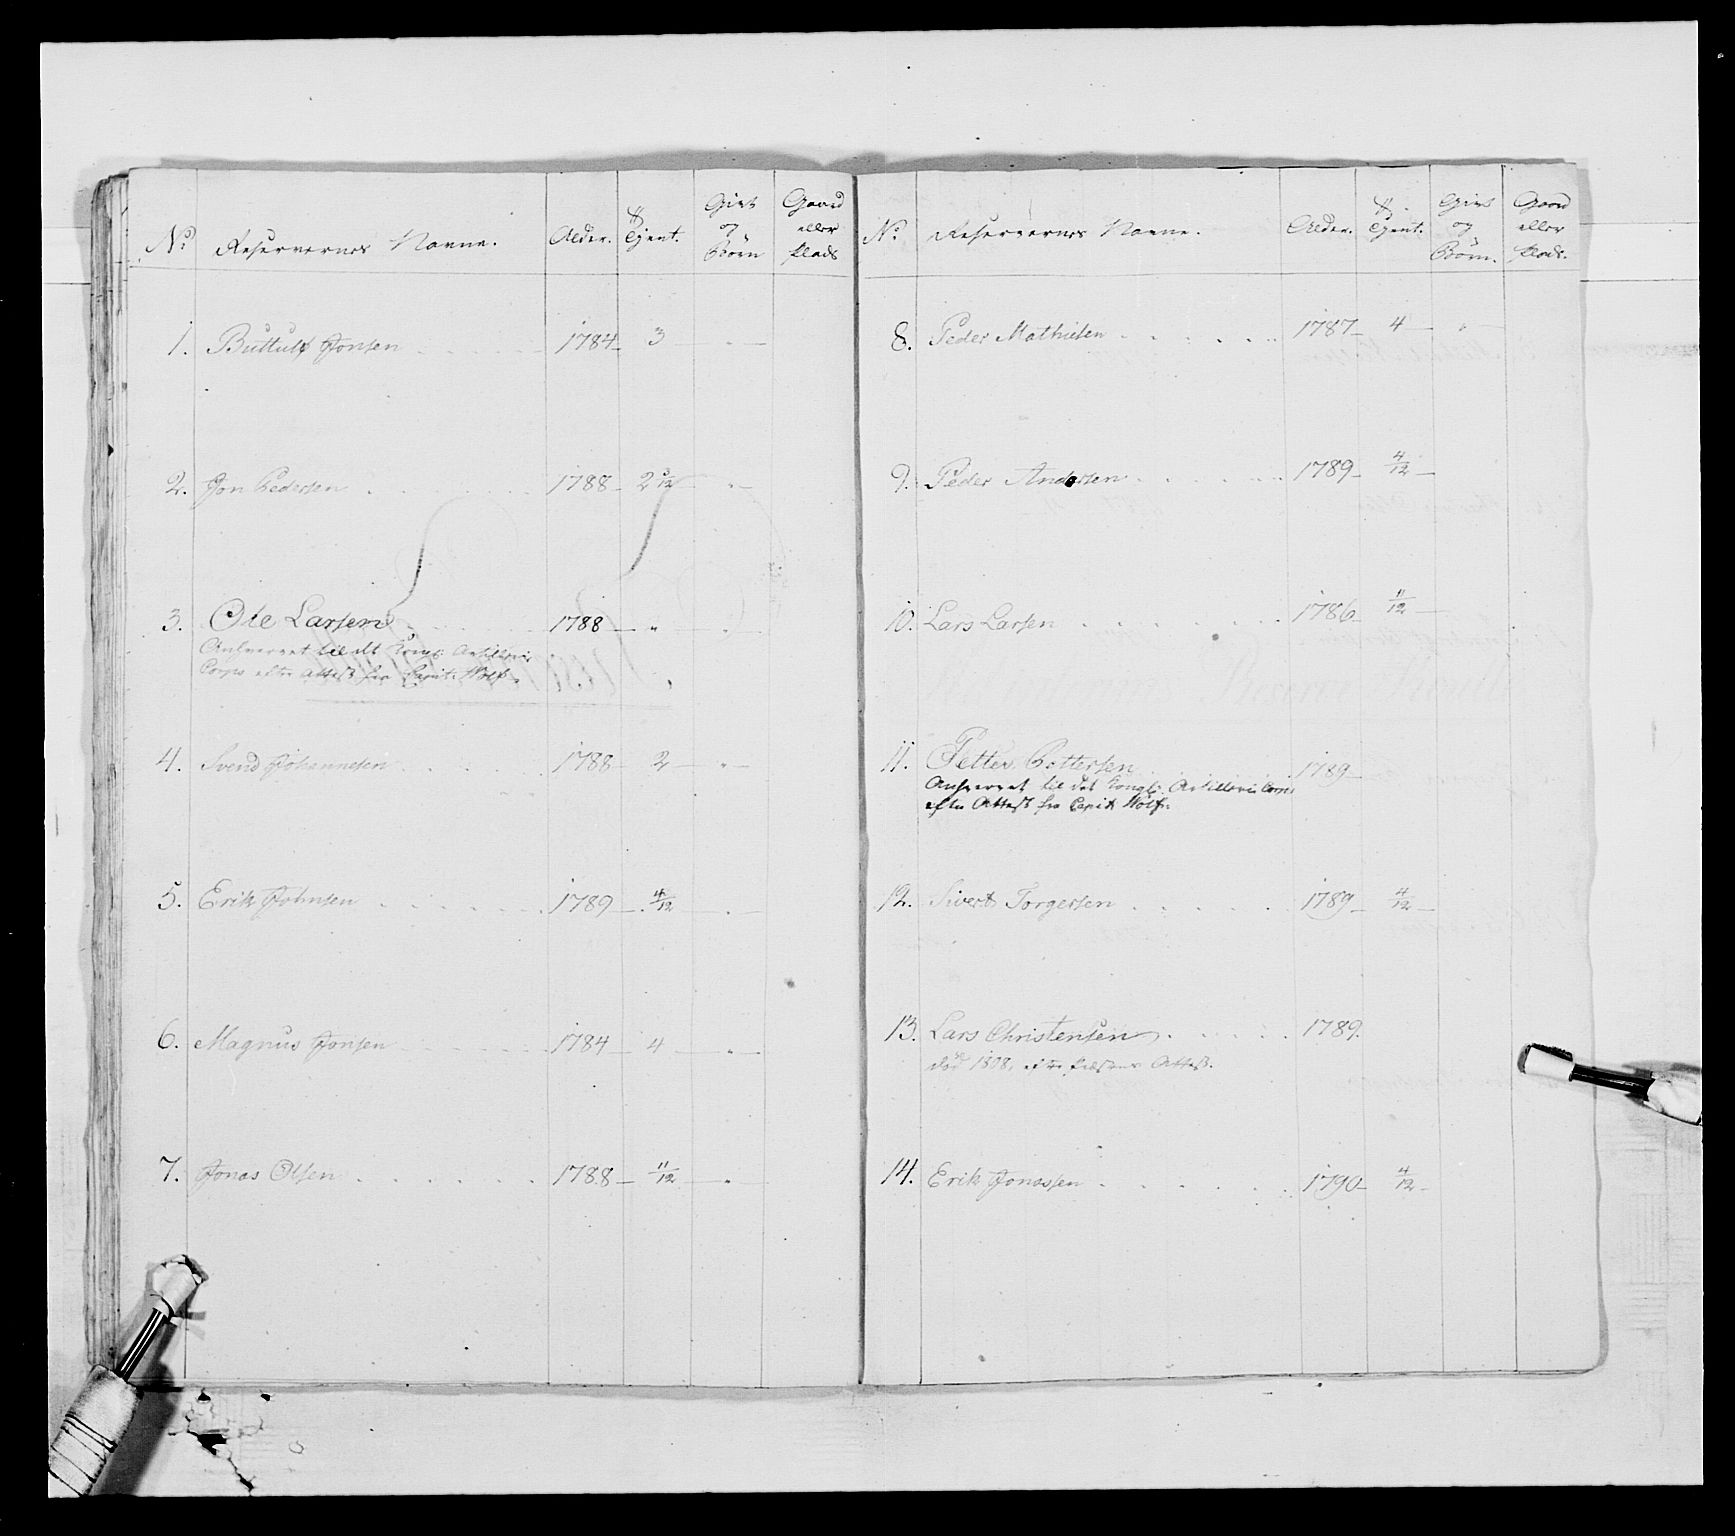 No. Reservernes Navne. Alder. Tjent. Givt og Börn Gaard eller Plads
1. Buttulf Jonsen 1784 3 "
2. Jon Pedersen 1788 2 "
3. Ole Larsen 1788 " "
Anhvervet til det Kongl: Artillerie
Corps efter Attest fra Capit: Wolf.
4. Svend Johannesen 1788 2 "
5. Erik Johnsen 1789 4/12 "
6. Magnus Jonsen 1784 4 "
7. Jonas Olsen 1788 11/12 "
No. Reservernes Navne. Alder. Tjent. Givt og Börn. Gaard eller Plads.
8. Peder Mathiesen 1787 4 "
9. Peder Andersen 1789 4/12
10. Lars Larsen 1786 11/12
11. Petter Pettersen 1789
Anhvervet til det Kongl: Artillerie Corps
efter Attest fra Capit Wolf.
12. Sivert Torgersen 1789 4/12
13. Lars Christensen 1789.
död 1808, efter Præstens Attest.
14. Erik Jonassen 1790 4/12